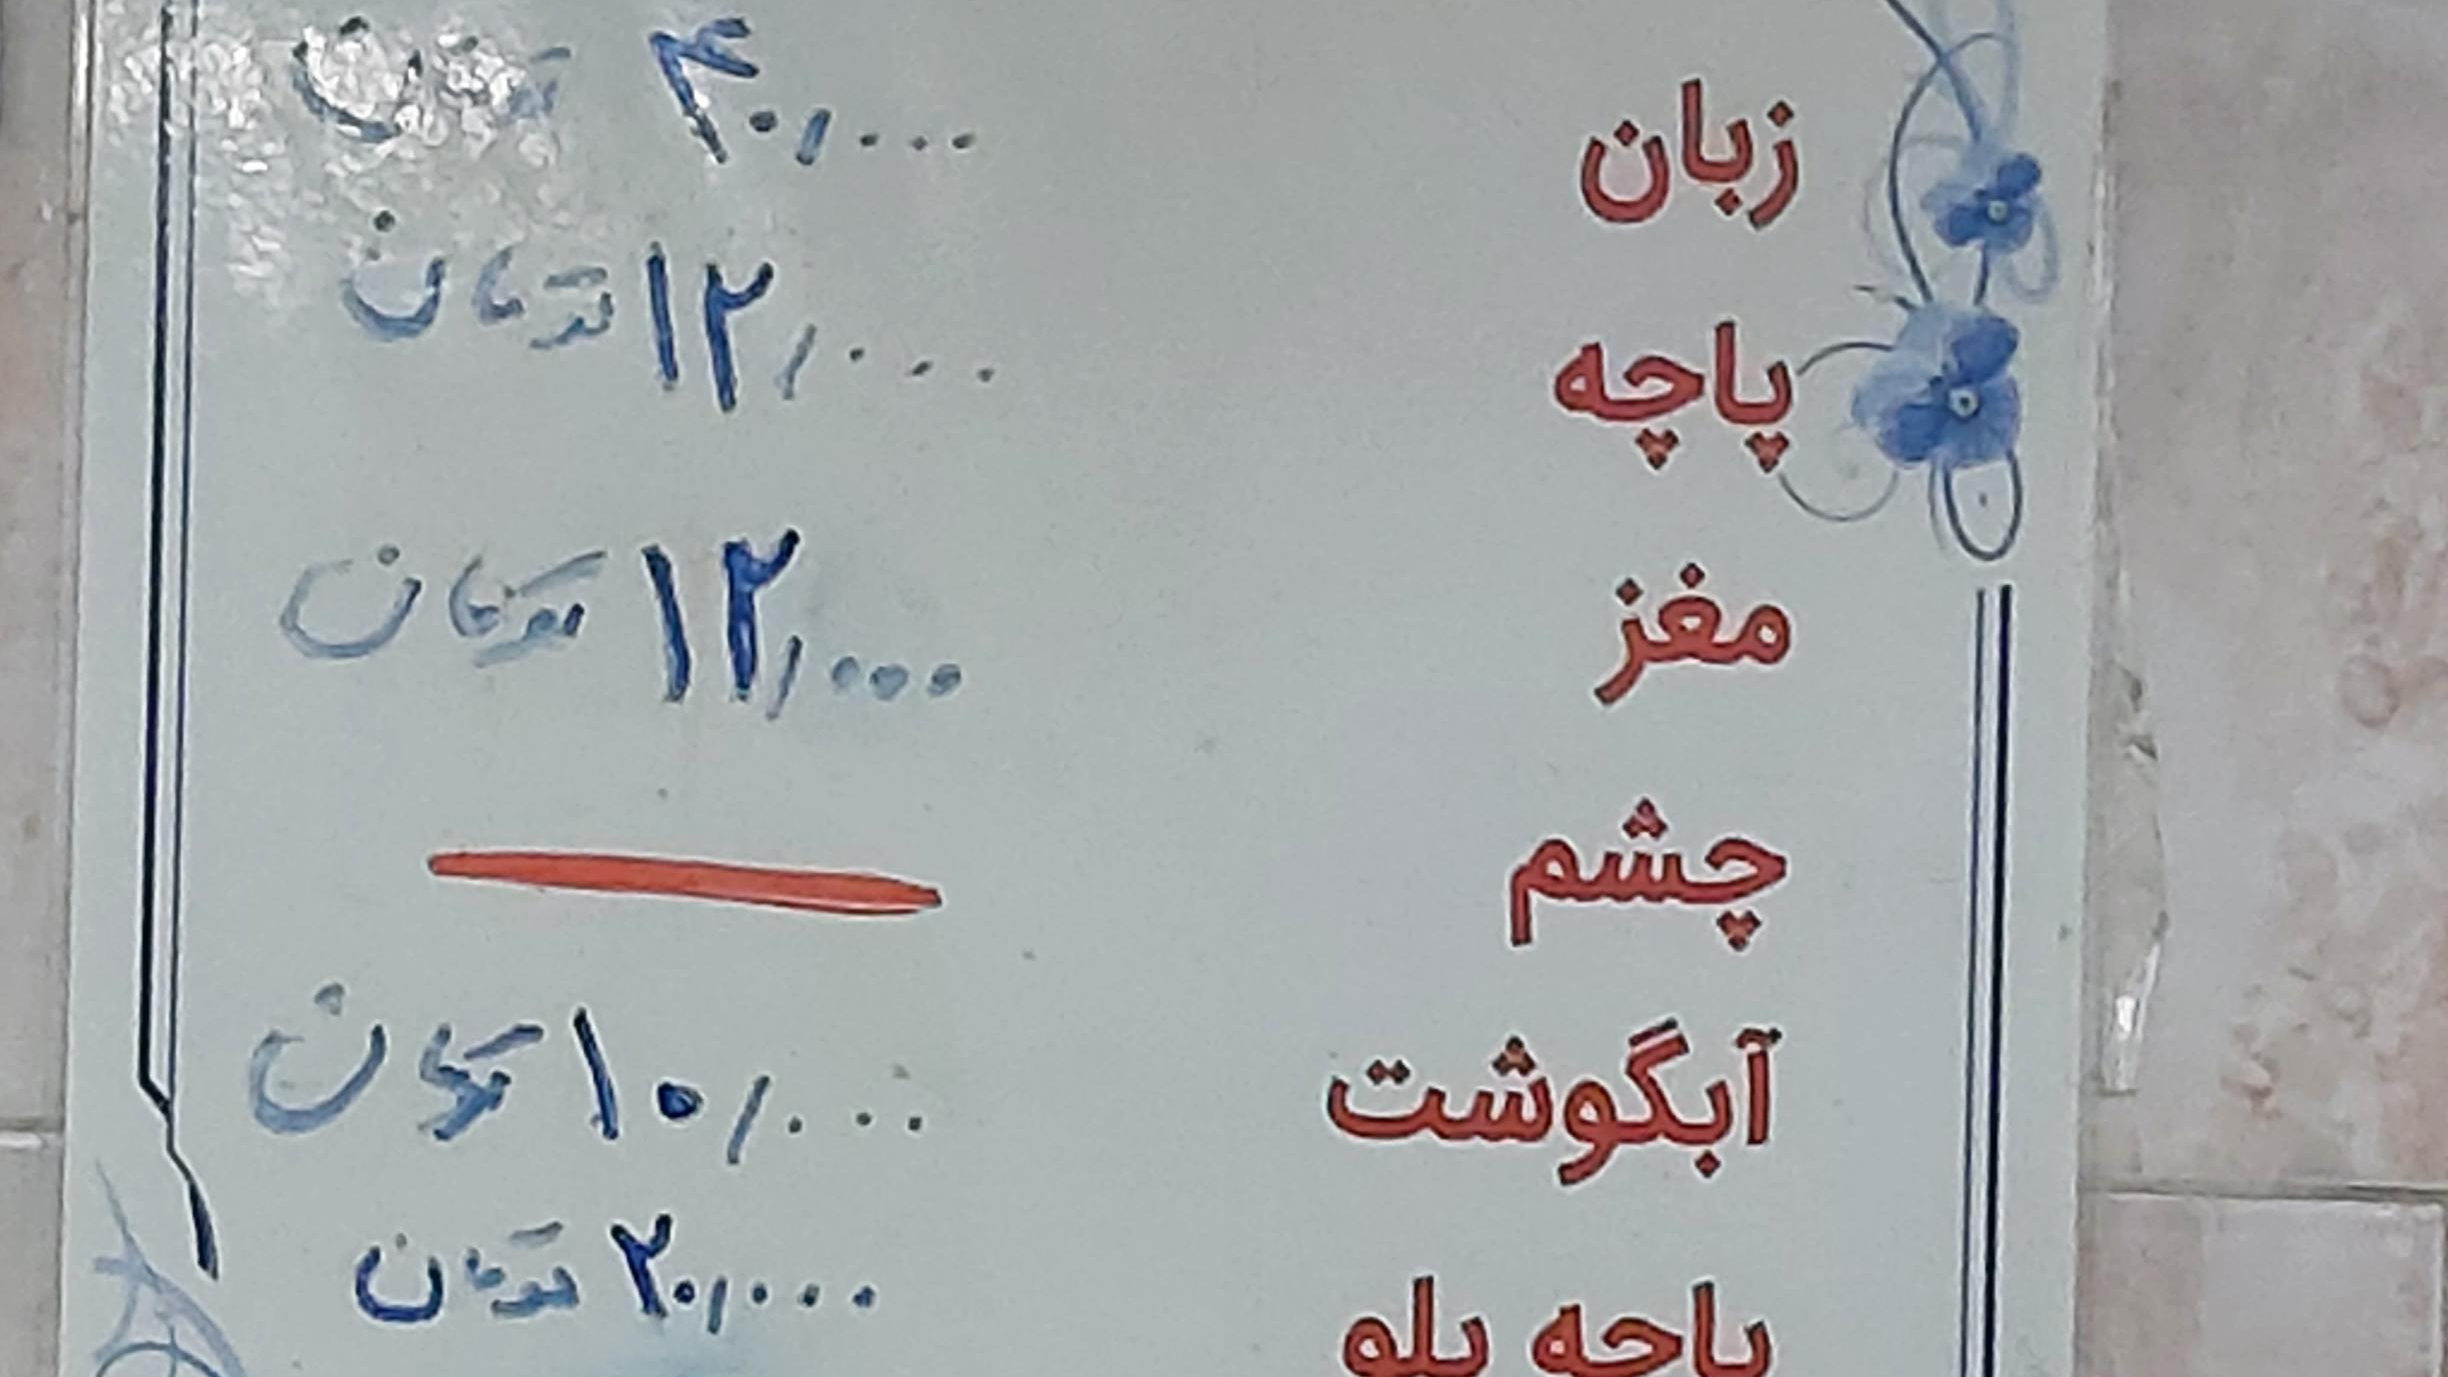 زبان ۴۰,۰۰۰ تومان
پاچه ۱۲,۰۰۰ تومان
مغز ۱۲,۰۰۰ تومان
چشم
آبگوشت ۱۰,۰۰۰ تومان
پاچه پلو ۲۰,۰۰۰ تومان